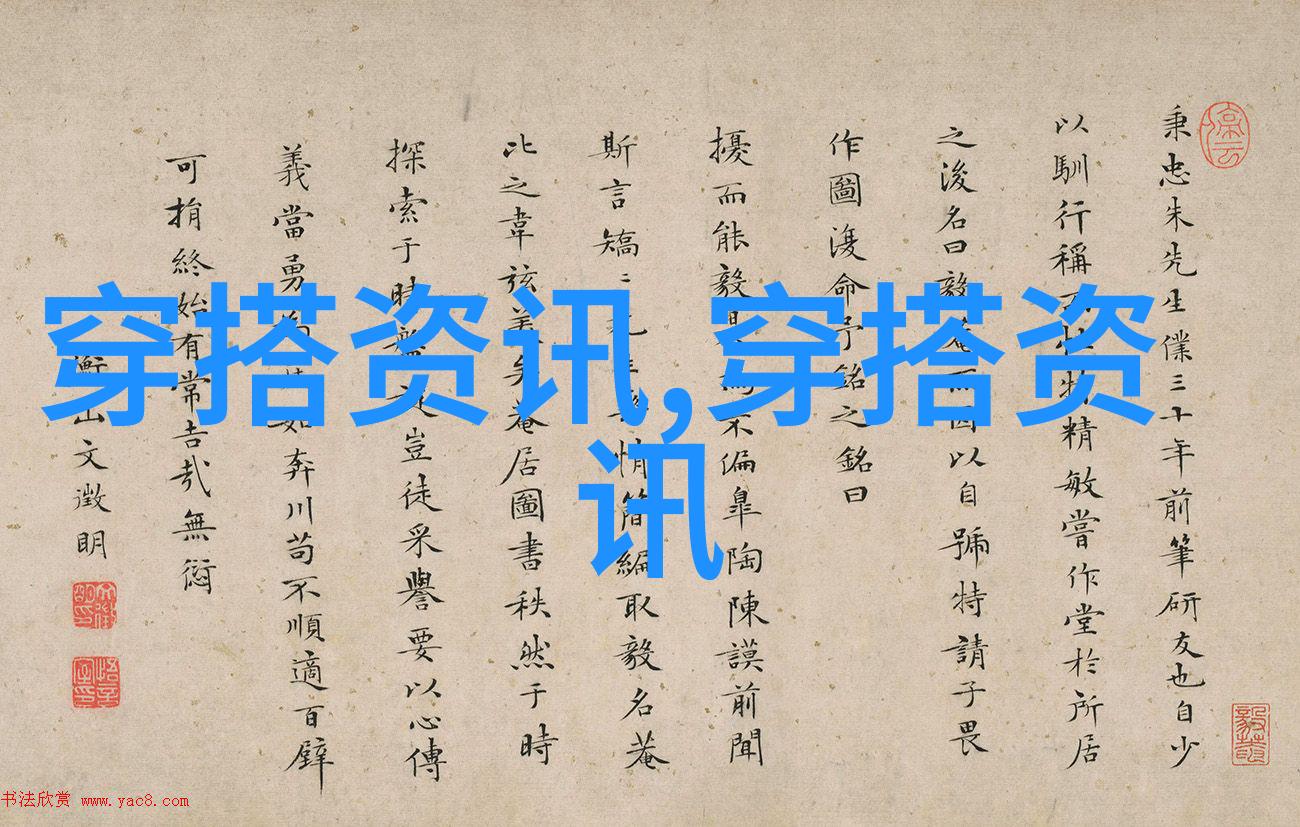 秉忠朱先生僕三十年前筆研友也自少
以馴行稱而精敏嘗作堂於所居
之後名曰毅菴而因以自號特請予畏
作圖漫命予銘之銘曰
擾而能毅不偏臯陶陳謨前聞
斯言矯矯簡編取毅名菴
比之韋弦美矣菴居圖書秩然于時
探索于豈徒采譽要以心傳
義當勇奔川苟不順適百辟
可捐終始有常吉哉無愆
衡山文徵明
穿搭资讯,穿搭资
讯
书法欣赏 www.yac8.com